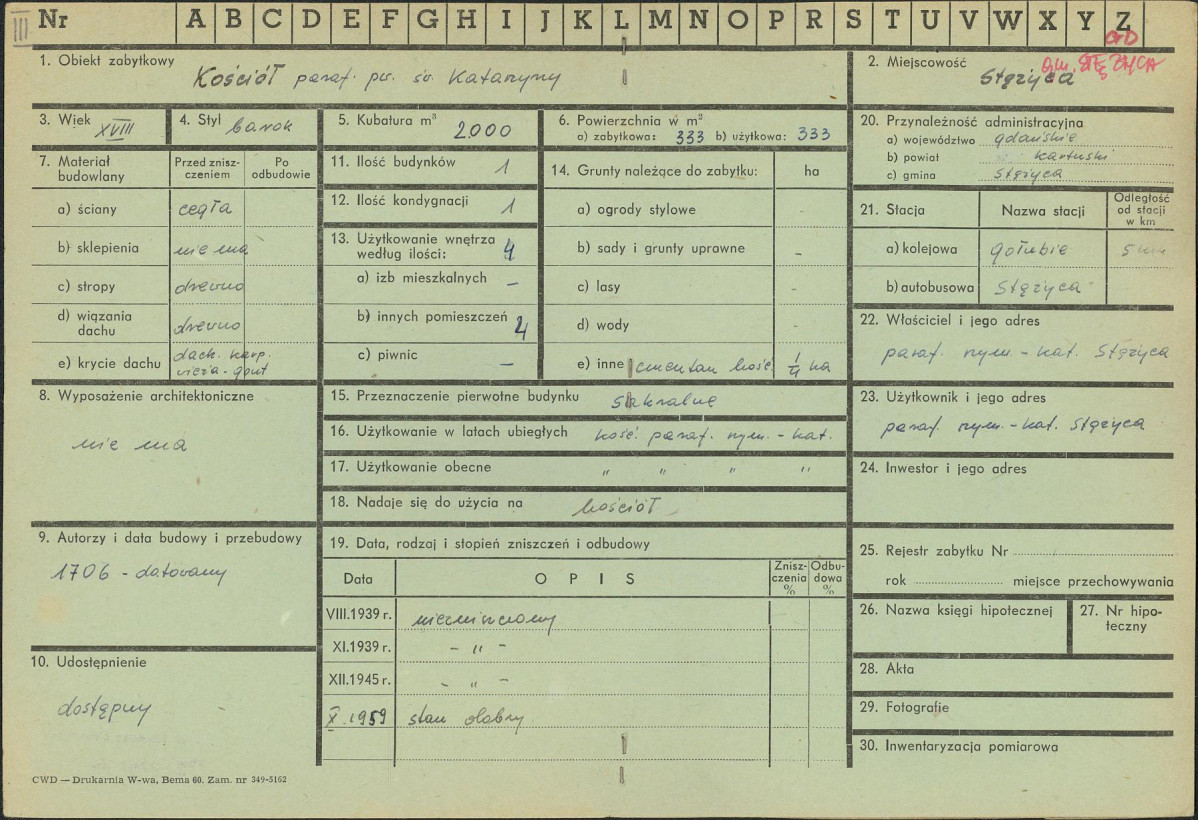 III
Nr A B C D E F G H I J K L M N O P R S T U V W X Y Z
GD
gm. STĘŻYCA
1. Obiekt zabytkowy Kościół paraf. pw. św. Katarzyny
2. Miejscowość Stężyca
3. Wiek XVIII
4. Styl barok
5. Kubatura m³ 2000
6. Powierzchnia w m²
a) zabytkowa: 333 b) użytkowa: 333
7. Materiał budowlany
Przed zniszczeniem
Po odbudowie
a) ściany cegła
b) sklepienia nie ma
c) stropy drewno
d) wiązania dachu drewno
e) krycie dachu dach. karp. wieża - gont
8. Wyposażenie architektoniczne
nie ma
9. Autorzy i data budowy i przebudowy
1706 - datowany
10. Udostępnienie
dostępny
11. Ilość budynków 1
12. Ilość kondygnacji 1
13. Użytkowanie wnętrza według ilości: 4
a) izb mieszkalnych –
b) innych pomieszczeń 4
c) piwnic –
14. Grunty należące do zabytku: ha
a) ogrody stylowe -
b) sady i grunty uprawne -
c) lasy -
d) wody -
e) inne cmentarz kość. 1/4 ha
15. Przeznaczenie pierwotne budynku sakralne
16. Użytkowanie w latach ubiegłych kość. paraf. rzym. - kat.
17. Użytkowanie obecne " " " "
18. Nadaje się do użycia na kościół
19. Data, rodzaj i stopień zniszczeń i odbudowy
Data OPIS Zniszczenia % Odbudowa %
VIII.1939 r. niezniszczony
XI.1939 r. - " -
XII.1945 r. - " -
X.1959 stan dobry
20. Przynależność administracyjna
a) województwo gdańskie
b) powiat kartuski
c) gmina Stężyca
21. Stacja Nazwa stacji Odległość od stacji w km
a) kolejowa Gołubie 5 km
b) autobusowa Stężyca
22. Właściciel i jego adres
paraf. rzym. - kat. Stężyca
23. Użytkownik i jego adres
paraf. rzym. - kat. Stężyca
24. Inwestor i jego adres
25. Rejestr zabytku Nr
rok miejsce przechowywania
26. Nazwa księgi hipotecznej
27. Nr hipoteczny
28. Akta
29. Fotografie
30. Inwentaryzacja pomiarowa
CWD — Drukarnia W-wa, Bema 60. Zam. nr 349-5162